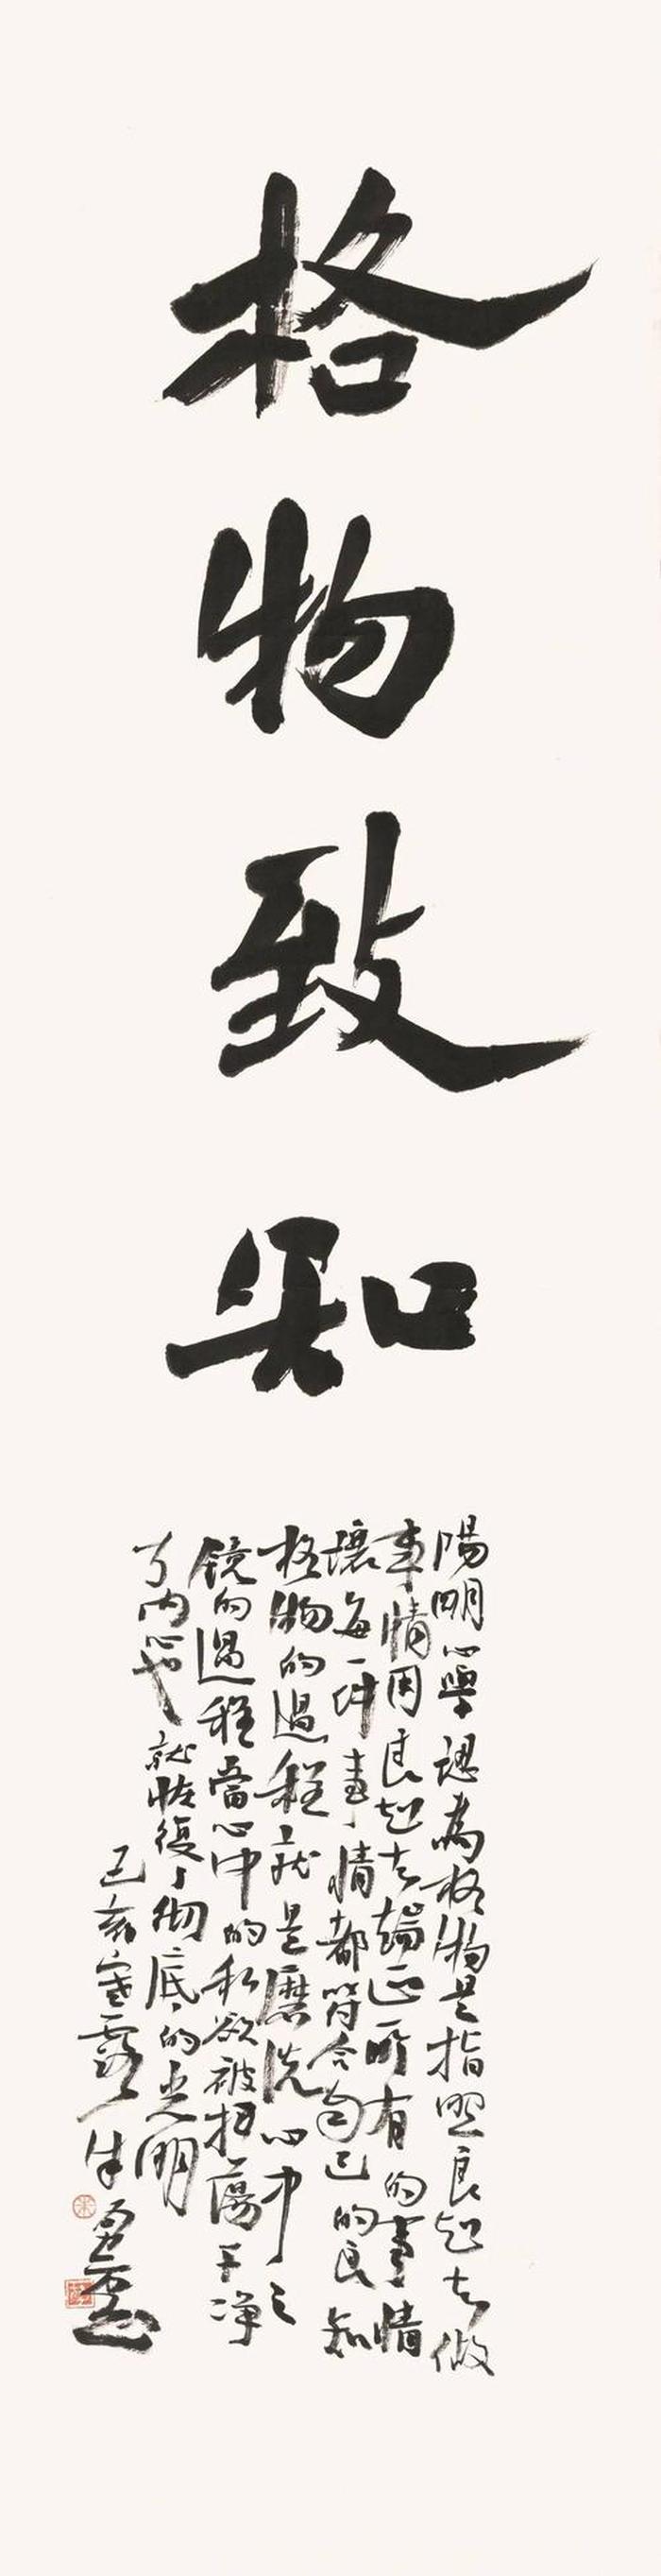 格物致知
陽明心學認為格物是指照良知去做
事情用良知去端正所有的事情
讓每一件事情都符合自己的良知
格物的過程就是磨洗心中之
鏡的過程當心中的私欲被扫蕩干净
了内心也就恢復了彻底的光明
己亥寒露朱